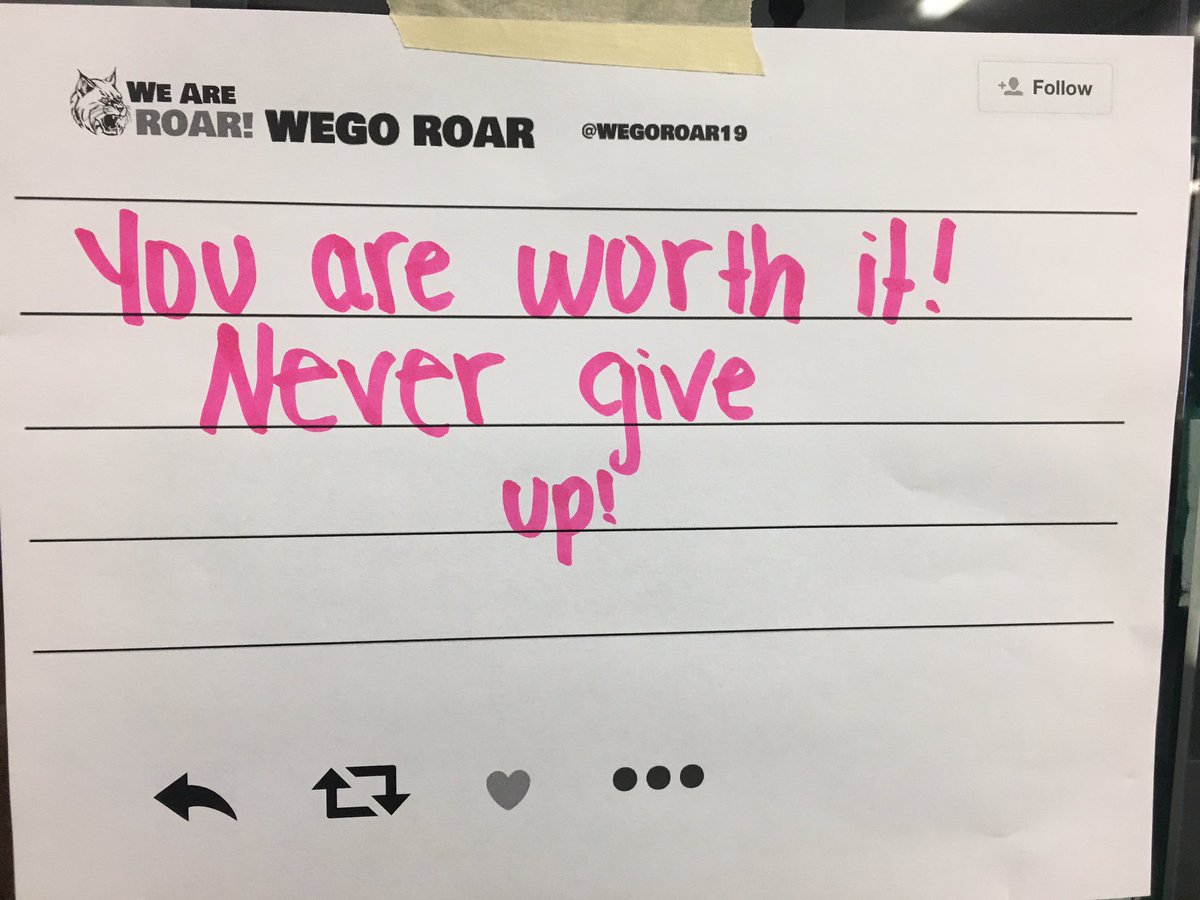 WE ARE
ROAR! WEGO ROAR @WEGOROAR19
Follow
You are worth it!
Never give
up!